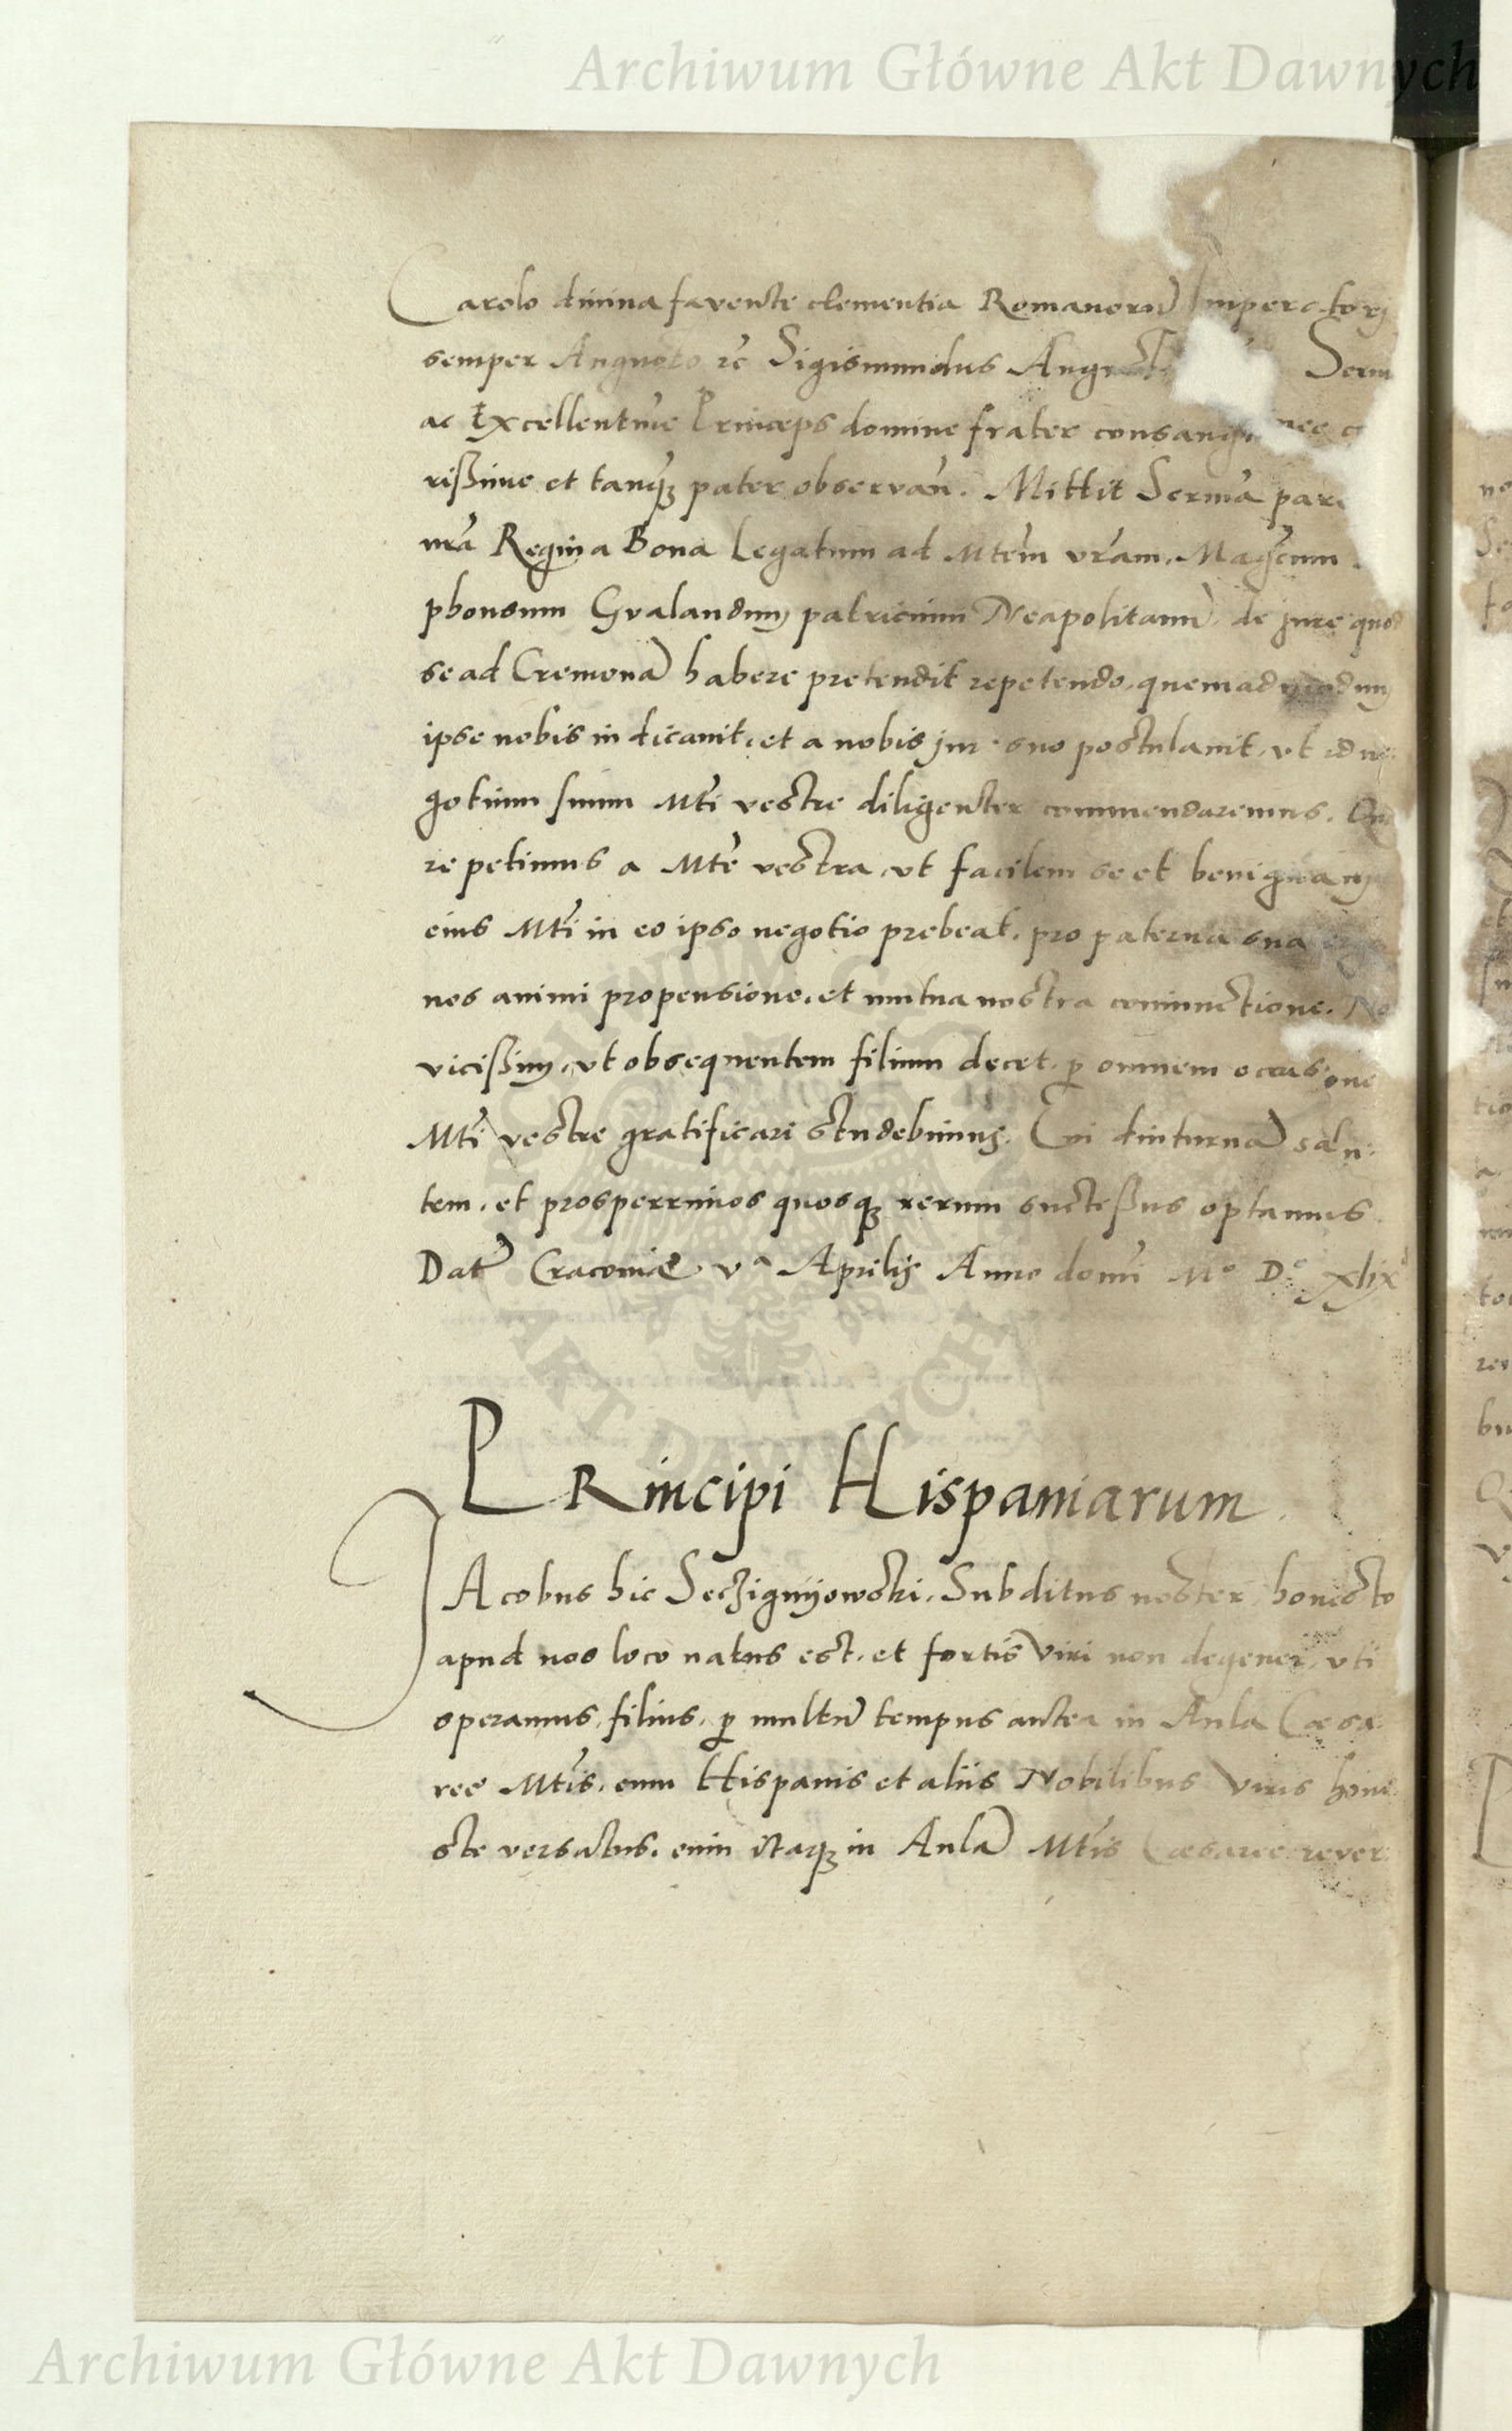 Archiwum Główne Akt Dawnych
Carolo divina favente clementia Romanorū Imperatorj
semper Augusto rc Sigismundus August Serm
ac Excellentme Princeps domine frater consangu nee c
rißime et tanq̄ʒ pater observan̄. Mittit Serma pare
nra Regina Bona Legatum ad Mtem vram. Magcum
phonsum Gvalandum patricium Neapolitanū, de jure quod
se ad Cremonā habere pretendit repetendo, quemadmodum
ipse nobis indicavit, et a nobis jure suo postulavit, vt id ne
gotium suum Mti vestre diligenter commendaremus. Qua
re petimus a Mte vestra, vt facilem se et benignam
eius Mti in eo ipso negotio prebeat, pro paterna sua erga
nos animi propensione, et mutua nostra coniunctione. No
vicißim, vt obsequentem filium decet, ꝑ omnem occasione
Mti vestre gratificari studebimus. Cui diuturnā salu
tem, et prosperrimos quosqʒ rerum succeßus optamus
Dat Cracoviæ va Aprilis Anno domi Mo Do xlixo
PRincipi Hispaniarum
JAcobus hic Secʒignijowski, Subditus noster, honesto
apud nos loco natus est, et fortis viri non degener, vti
operamus, filius, ꝑ multū tempus antea in Aula Cæsa
ree Mtis, cum Hispanis et aliis Nobilibus Viris hone
ste versatus, eum itaqʒ in Aulā Mtis Cæsaree rever
Archiwum Główne Akt Dawnych